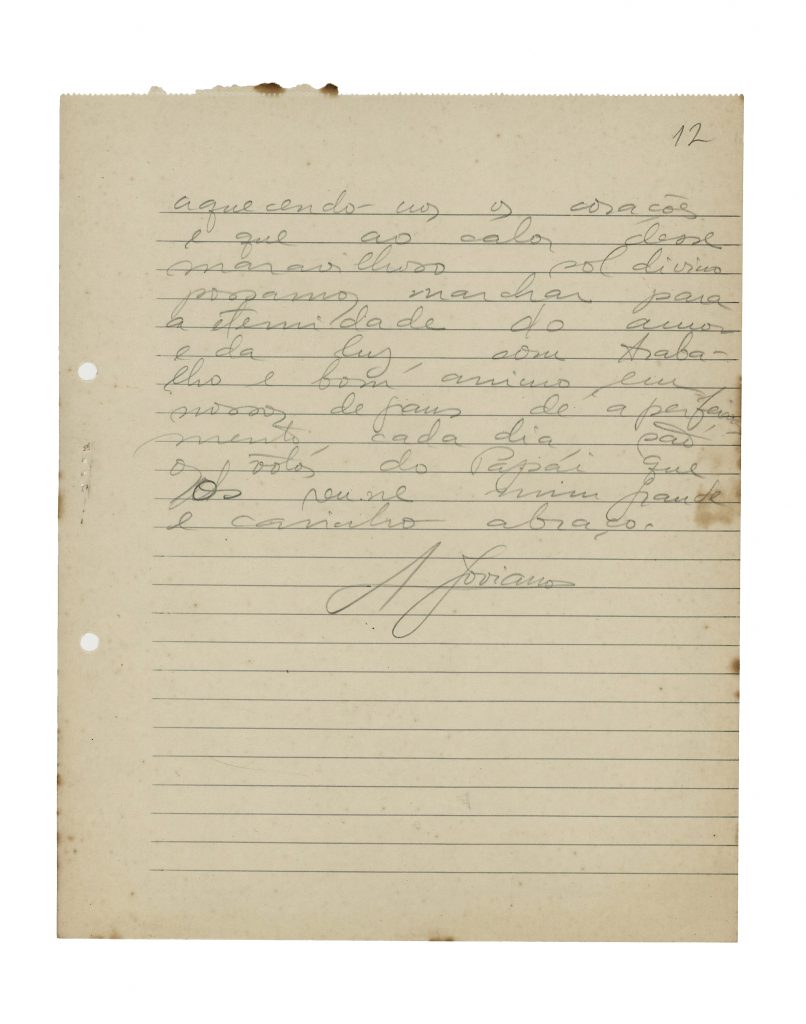 12
aquecendo-nos os corações
e que ao calor desse
maravilhoso sol divino
possamos marchar para
a eternidade do amor
e da luz, com traba-
lho e bom animo, em
nossos de
mento, cada dia são
os votos do Papái que
os reune num grande
e carinho abraço.
A Joviano